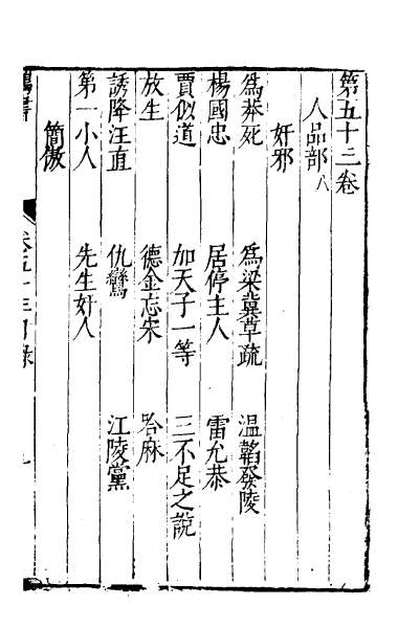 第五十三卷
人品部八
奸邪
爲莽死　爲梁冀草疏　溫韜發陵
楊國忠　居停主人　雷允恭
賈似道　加天子一等　三不足之說
放生　德金忘宋　哈麻
誘降汪直　仇鸞　江陵黨
第一小人　先生奸人
簡傲